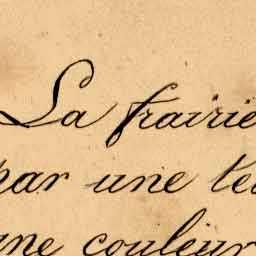 La frairie
par une te
une couleur